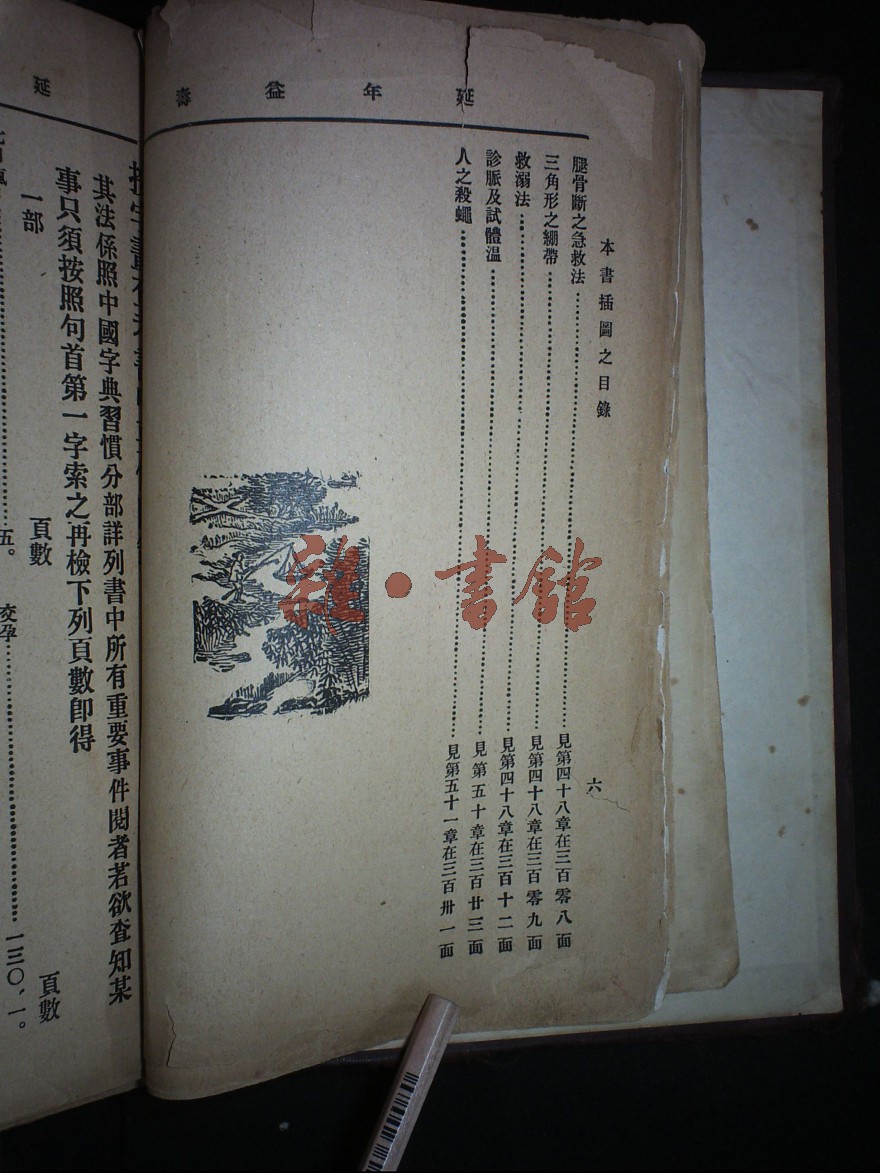 延年益壽
本書插圖之目錄
六
腿骨斷之急救法……見第四十八章在三百零八面
三角形之綳帶……見第四十八章在三百零九面
救溺法……見第四十八章在三百十二面
診脈及試體溫……見第五十章在三百廿三面
人之殺蠅……見第五十一章在三百卅一面
雜·書館
延
其法係照中國字典習慣分部詳列書中所有重要事件閱者若欲查知某
事只須按照句首第一字索之再檢下列頁數卽得
一部
頁數
頁數
五。
交孕……一三〇、一。